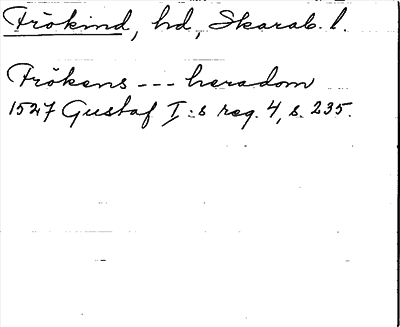 Frökind, hd, Skarab. l.
Frökens --- heradom
1527 Gustaf I:s reg. 4, s. 235.